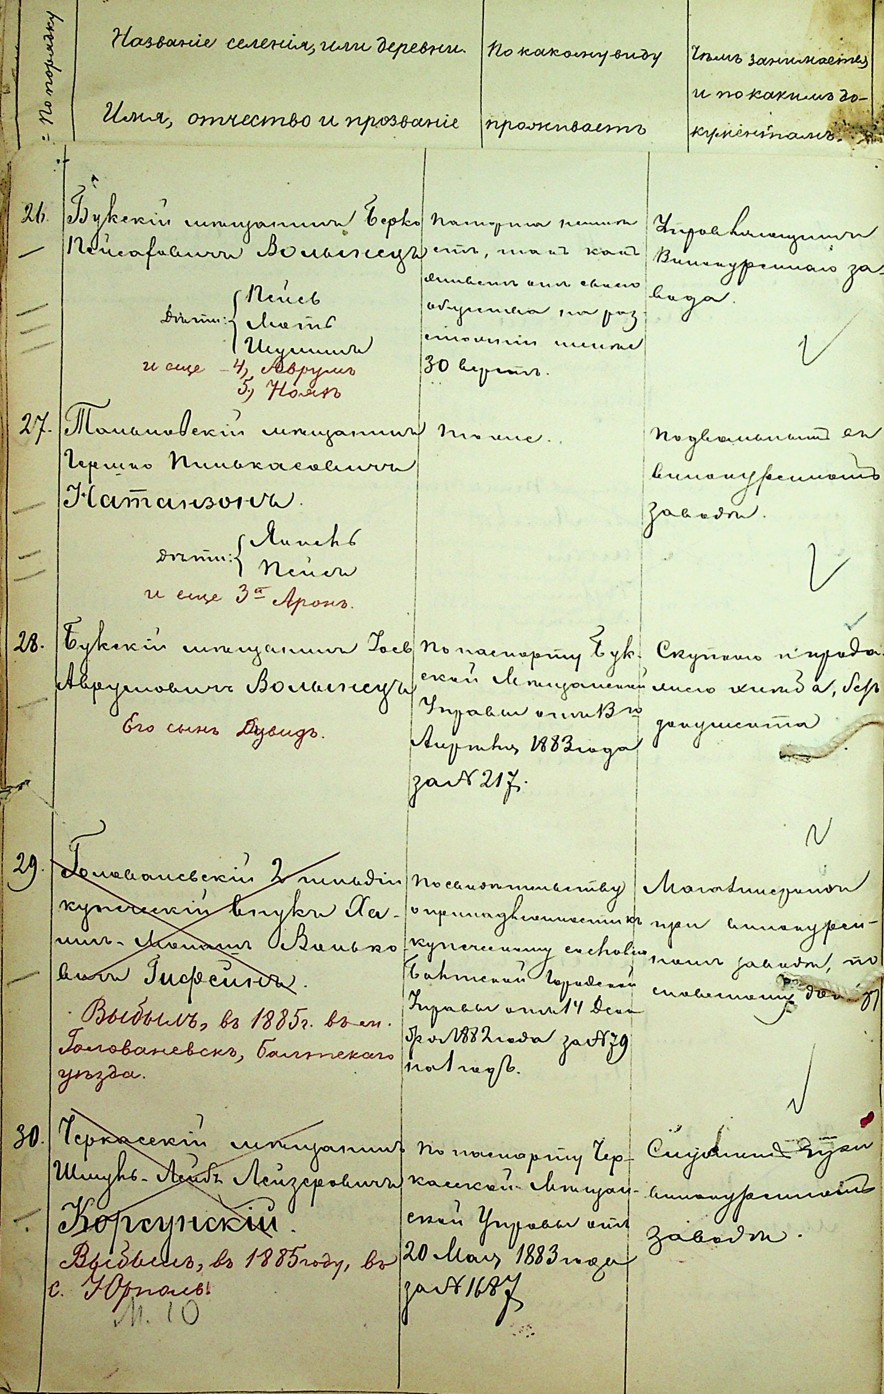 По порядку
Названіе селенія, или деревни.
Имя, отчество и прозваніе
По какому виду
проживаетъ
Чѣмъ занимается,
и по какимъ до-
кументамъ.
26.
Букскій мѣщанинъ Берко
Пейсаховичъ Волынецъ
Дѣти:
Пейсъ
Мотъ
и еще 4, Аврумъ
5, Ноахъ
Паспорта не имѣ
етъ, такъ какъ
живетъ отъ своего
общества на раз-
стояніи менѣе
30 верстъ.
Управляющимъ
Винокуреннаго за-
вода.
27.
Тальновскій мѣщанинъ
Гершко Пинькасовичъ
Натанзонъ.
Дѣти:
Пейсъ
и еще 3й Аронъ.
Тоже.
Подвальный въ
винокуренномъ
заводѣ.
28.
Букскій мѣщанинъ Іосъ
Аврумовичъ Волынецъ
Его сынъ Дувидъ.
По паспорту Бук-
ской Мѣщанской
Управы отъ 13го
Апрѣля 1883 года
за № 217.
Скупкою и прода-
жею хлѣба, безъ
документа
29.
Голованевскій 2 гильдіи
купеческій внукъ Ха-
имъ-
Вы былъ, въ 1885 г. въ м.
Голованевскъ, балтскаго
уѣзда.
По свидѣтельству
о принадлежности къ
купеческому сословію
Балтской Городской
Управы отъ 14 Дека
бря 1882 года за № 79
на 1 годъ.
при винокурен-
номъ заводѣ, по
словесному
30.
Черкасскій мѣщанинъ
Шмуль-Лейбъ Лейзеровичъ
Корсунскій.
Выбылъ, въ 1885 году, въ
с. Юрполь
М. 10
По паспорту Чер-
касской Мѣщан-
ской Управы отъ
20 Мая 1883 года
за № 1687
при
винокуренномъ
заводѣ.